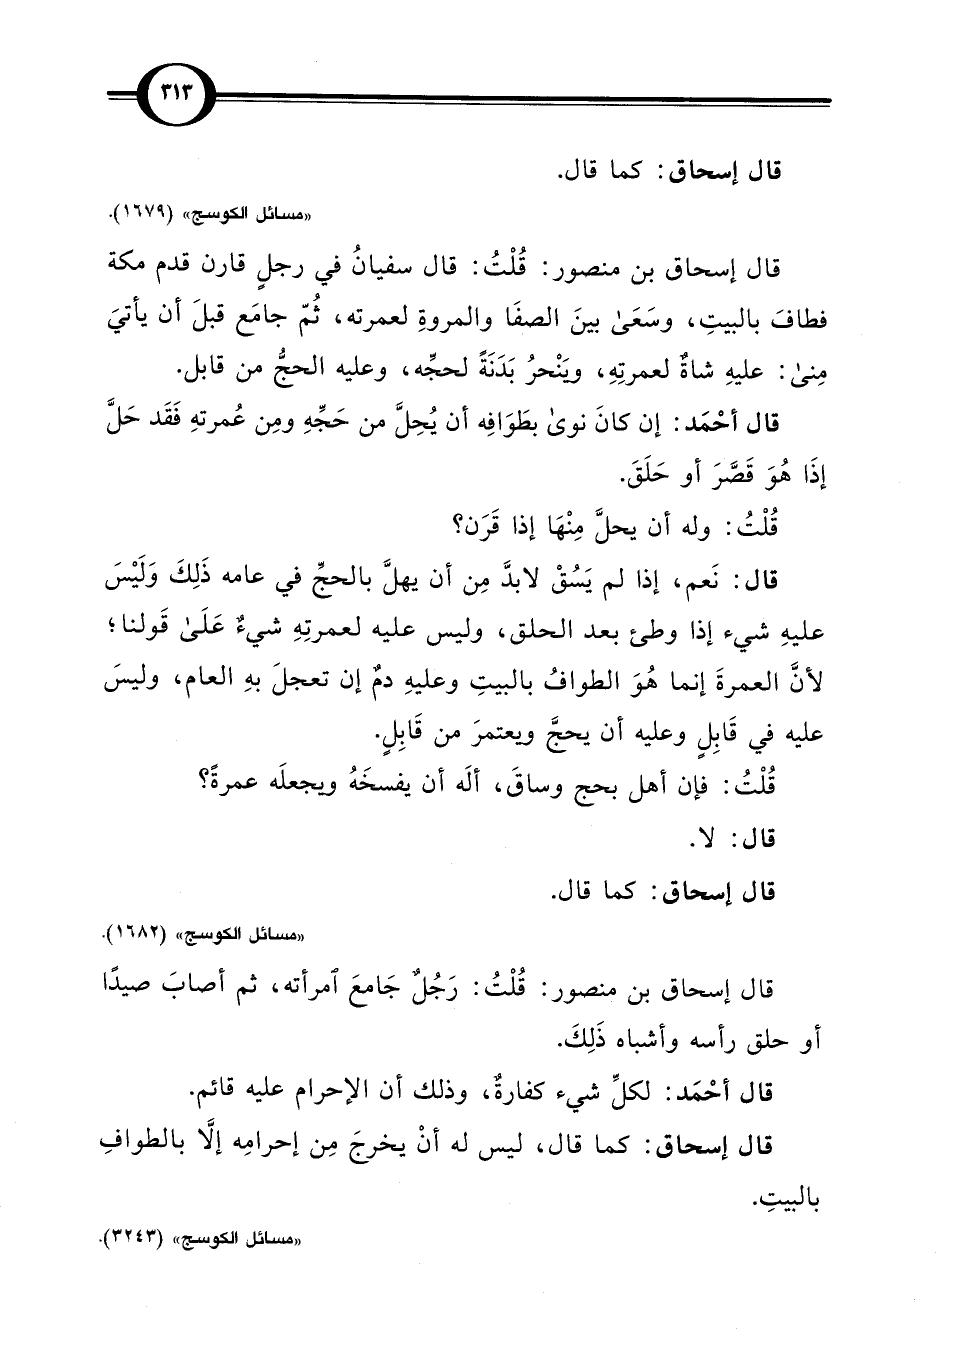 ٣١٣
قال إسحاق: كما قال.
«مسائل الكوسج» (١٦٧٩).
قال إسحاق بن منصور: قُلْتُ: قال سفيانُ في رجلٍ قارن قدم مكة
فطافَ بالبيتِ، وسَعَىٰ بينَ الصفَا والمروةِ لعمرته، ثُمّ جامَع قبلَ أن يأتيَ
مِنىٰ: عليهِ شاةٌ لعمرتِهِ، ويَنْحرُ بَدَنَةً لحجِّه، وعليه الحجُّ من قابل.
قال أحْمَد: إن كانَ نوىٰ بطَوَافِه أن يُحِلَّ من حَجِّه ومِن عُمرتهِ فَقَد حَلَّ
إذَا هُوَ قَصَّرَ أو حَلَقَ.
قُلْتُ: وله أن يحلَّ مِنْهَا إذا قَرَن؟
قال: نَعم، إذا لم يَسُقْ لابدَّ مِن أن يهلَّ بالحجِّ في عامه ذَلِكَ وَلَيْسَ
عليهِ شيء إذا وطئ بعد الحلق، وليس عليه لعمرتِهِ شيءٌ عَلَىٰ قَولنا؛
لأنَّ العمرةَ إنما هُوَ الطوافُ بالبيتِ وعليهِ دمٌ إن تعجلَ بهِ العام، وليسَ
عليه في قَابِلٍ وعليه أن يحجَّ ويعتمرَ من قَابِلٍ.
قُلْتُ: فإن أهل بحج وساقَ، ألَه أن يفسخَهُ ويجعلَه عمرةً؟
قال: لا.
قال إسحاق: كما قال.
«مسائل الكوسج» (١٦٨٢).
قال إسحاق بن منصور: قُلْتُ: رَجُلٌ جَامعَ ٱمرأته، ثم أصابَ صيدًا
أو حلق رأسه وأشباه ذَلِكَ.
قال أحْمَد: لكلِّ شيء كفارةٌ، وذلك أن الإحرام عليه قائم.
قال إسحاق: كما قال، ليس له أنْ يخرجَ مِن إحرامِه إلَّا بالطوافِ
بالبيتِ.
«مسائل الكوسج» (٣٢٤٣).